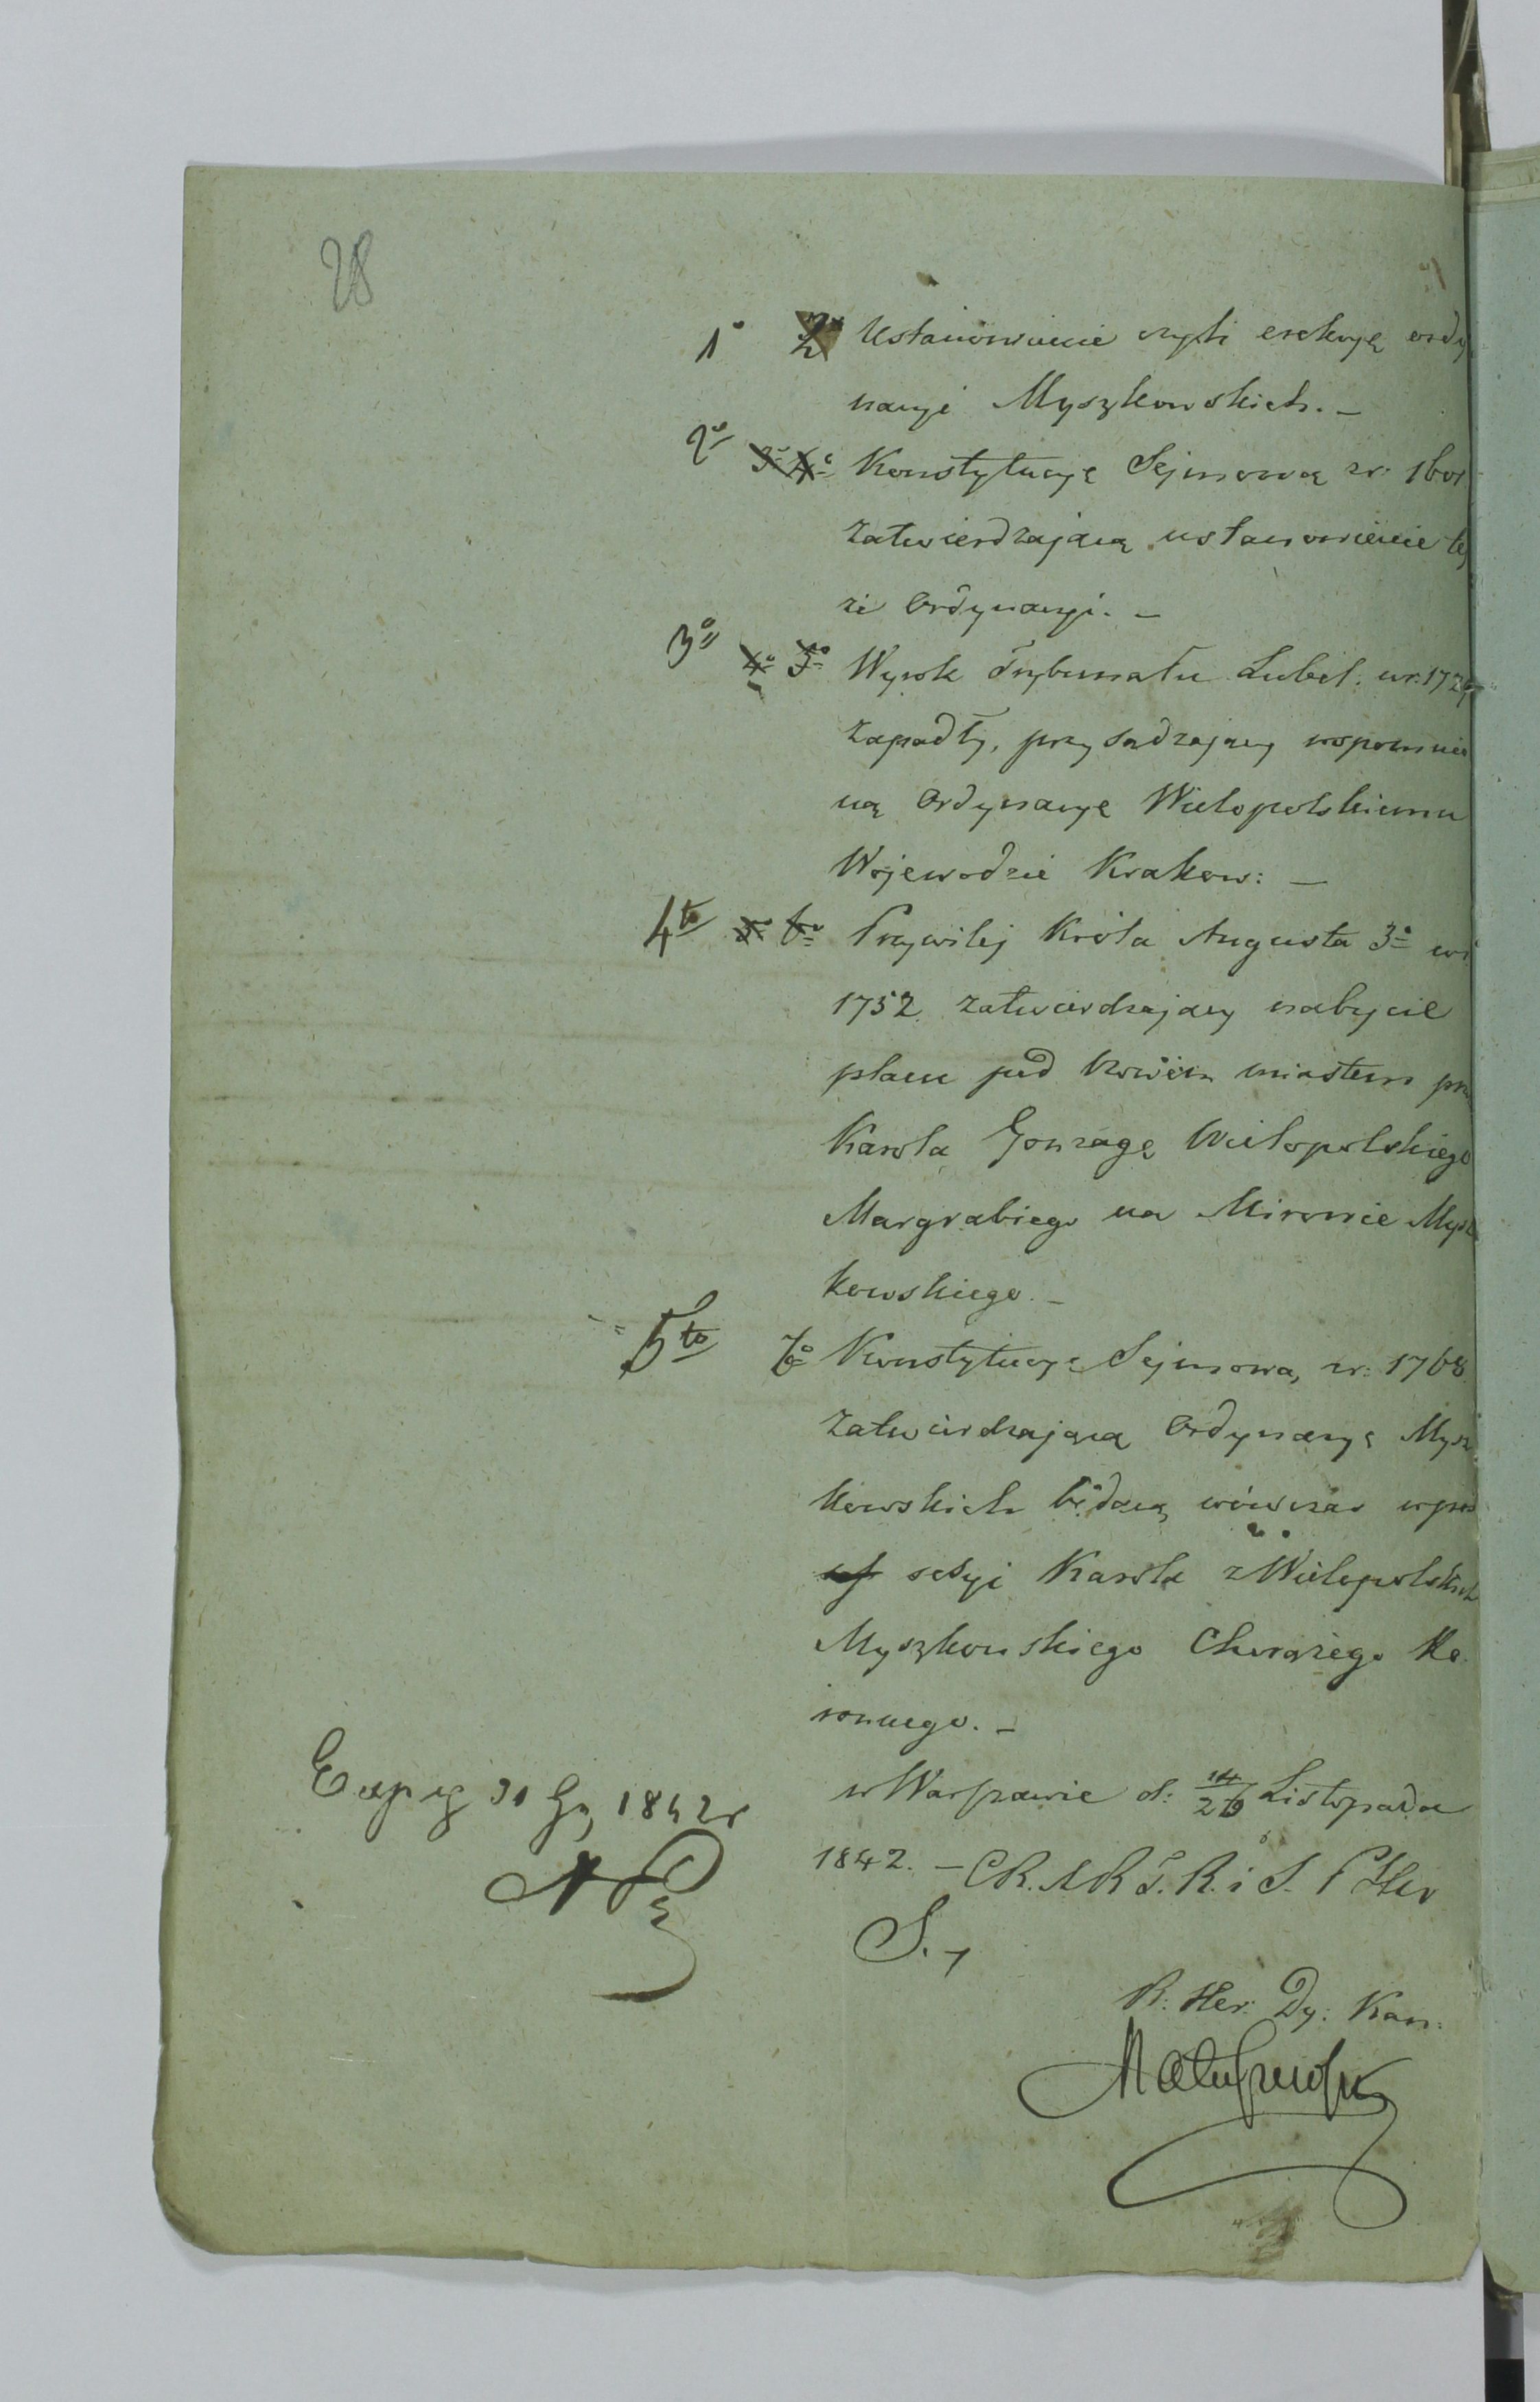 28
1° Ustanowienie czyli erekcyę ordy
nacyi Myszkowskich. –
2° 3° 4° Konstytucyę Sejmową z r: 1601
zatwierdzającą ustanowienie tej
że Ordynacyi. –
3° 4° 5° Wyrok Trybunału Lubel: w r. 1729
zapadły, przysądzający wspomnio
ną Ordynacyę Wielopolskiemu
Wojewodzie Krakow: –
4to 5° 6° Przywilej Króla Augusta 3° w r
1752 zatwierdzający nabycie
placu pod miastem prz
Karola Gonzagę Wielopolskiego
Margrabiego na Mirowie Mysz
kowskiego. –
5to 7° Konstytucyę Sejmową z r: 1768
zatwierdzającą Ordynacyę Mysz
kowskich będącą wówczas w pos
sesyi Karola z Wielopolskich
Myszkowskiego Chorążego Ko
ronnego. –
w Warszawie d: 14/26 Listopada
1842. –
S.
R: Her: Dy: Kan:
1842 r